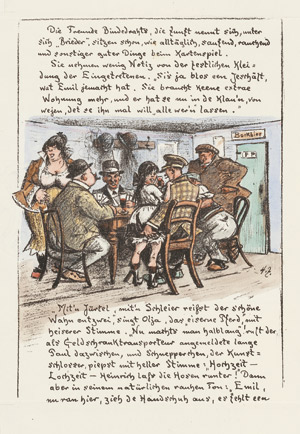 Die Freunde Bindedrahts, die Zunft nennt sich, unter
sich „Brieder“, sitzen schon, wie alltäglich, saufend, rauchend
und sonstiger guter Dinge beim Kartenspiel.
Sie nehmen wenig Notiz von der festlichen Klei=
dung der Eingetretenen. „Sis ja blos een Jeschäft,
wat Emil jemacht hat. Sie braucht keene extrae
Wohnung mehr, und er hat se nu in de Klau'n, von
wejen, det se ihn mal will alle wer'n lassen.“
H.Z.
„Mit'n Jürtel, mit'n Schleier reißt der schöne
Wahn entzwei“, singt Olja, das eiserne Pferd, mit
heiserer Stimme. „Nu machts man halblang“ ruft der
als Geldschranktransporteur angemeldete lange
Paul dazwischen, und Schnepperchen, der Kunst=
schlosser, piepst mit heller Stimme: „Hochzeit —
Lochzeit — Heinrich laß die Hosen runter!“ Dann
aber in seinem natürlichen rauhen Ton: „Emil,
nu ran hier, zieh de Handschuh aus, es fehlt een